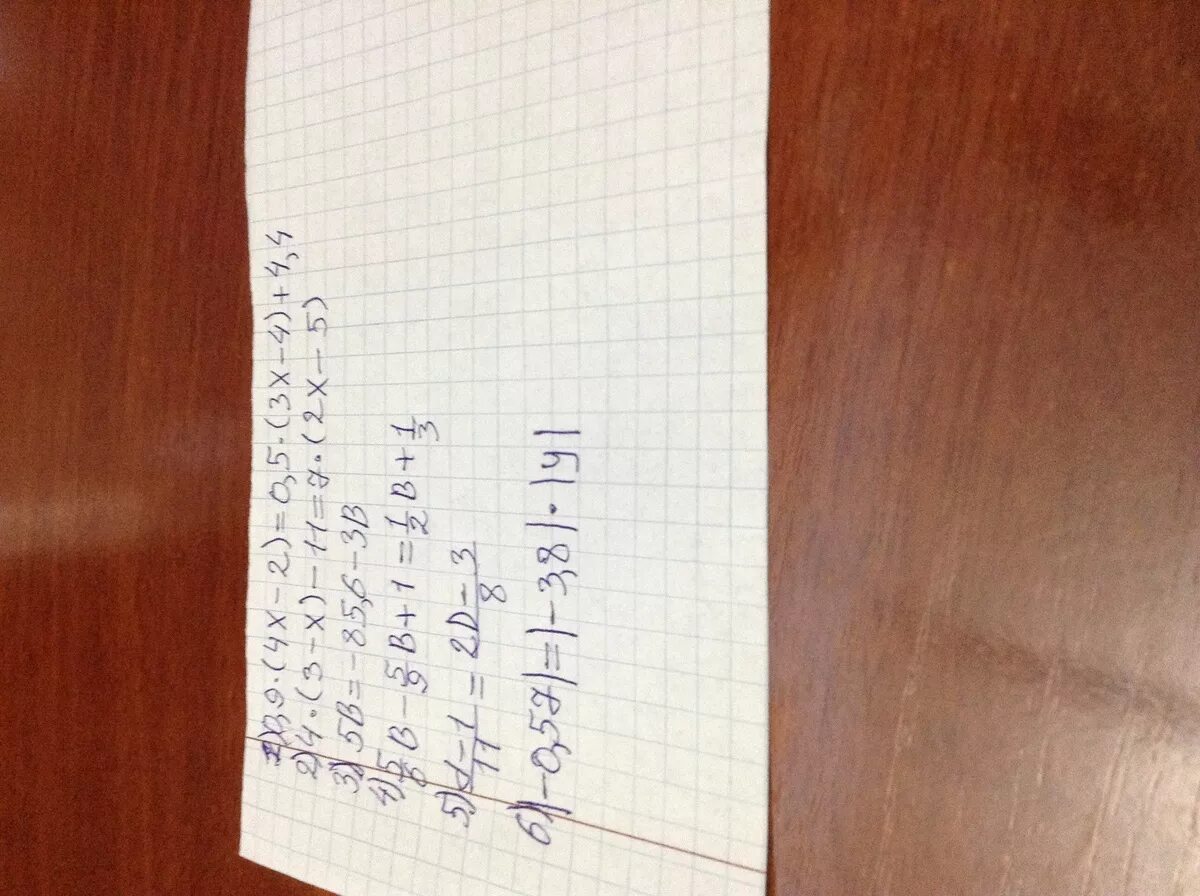 1) 0,9·(4x-2)=0,5·(3x-4)+4,4
2) 4·(3-x)-11=7·(2x-5)
3) 5B=-85,6-3B
4) 5/8B-5/9B+1=1/2B+1/3
5) d-1/11=2D-3/8
6) |-0,57|=|-3,8|·|y|